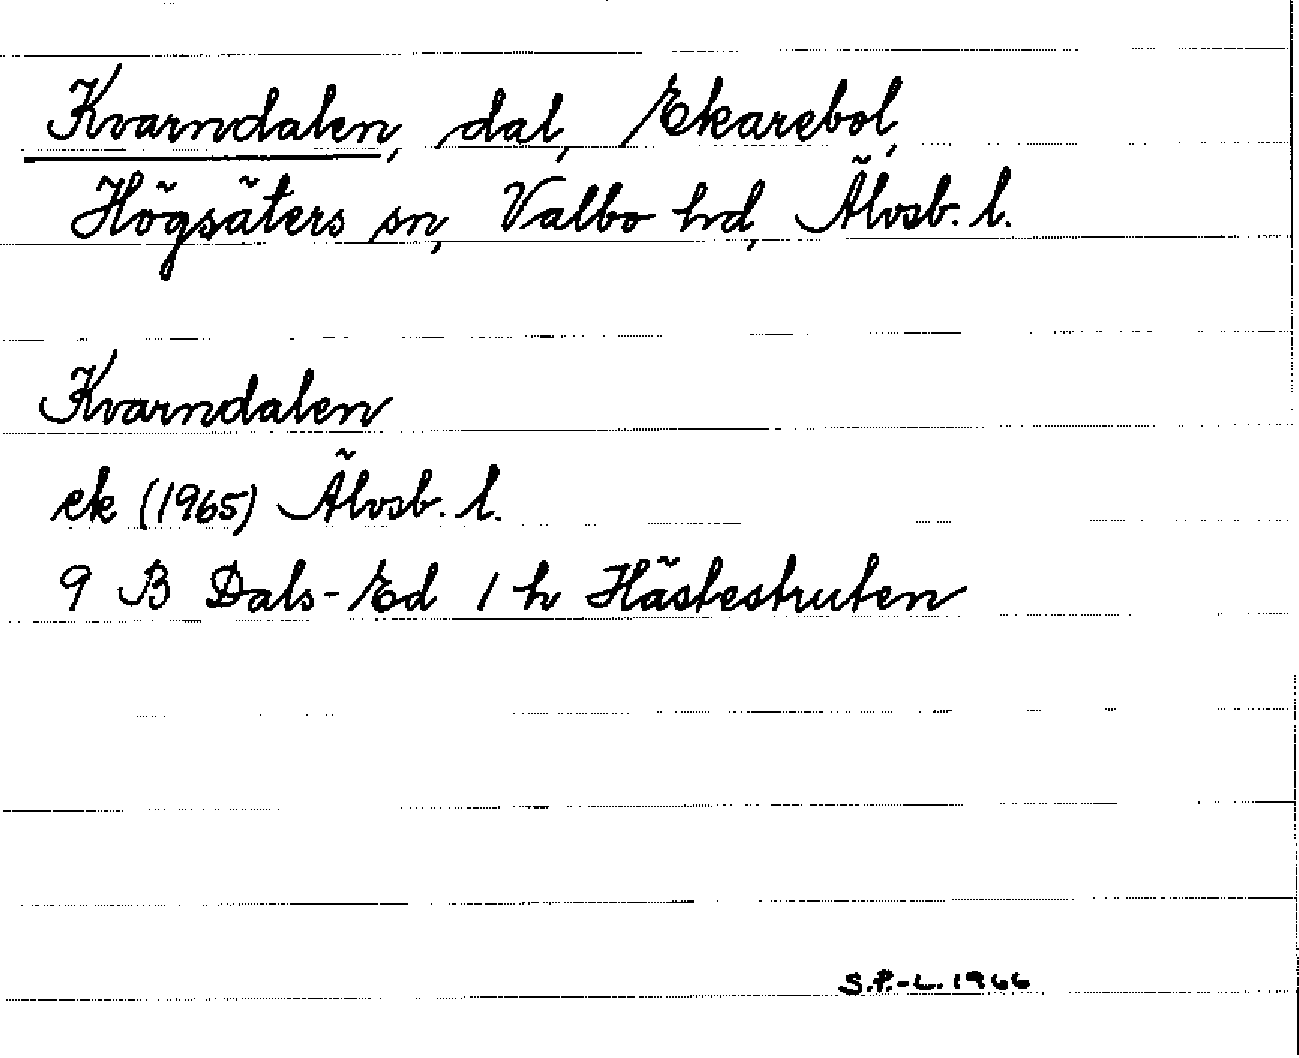 Kvarndalen, dal, Ekarebol,
Högsäters sn, Valbo hd, Älvsb. l.
Kvarndalen
ek (1965) Älvsb. l.
9 B Dals-Ed 1 h Hästestruten
S.P.-L. 1966